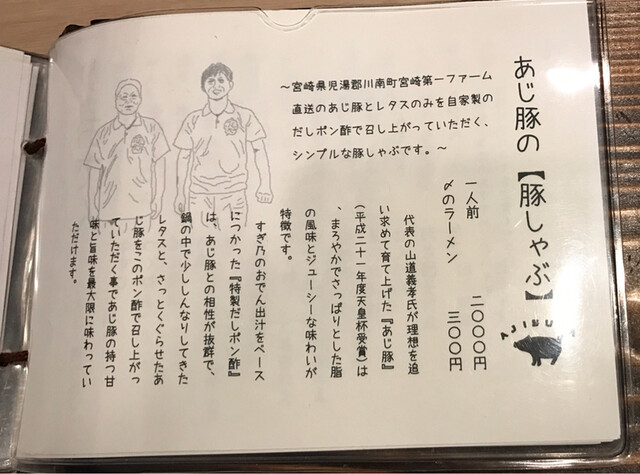 あじ豚の【豚しゃぶ】
AJIBUTA
〜宮崎県児湯郡川南町宮崎第一ファーム
直送のあじ豚とレタスのみを自家製の
だしポン酢で召し上がっていただく、
シンプルな豚しゃぶです。〜
一人前 二〇〇〇円
〆のラーメン 三〇〇円
代表の山道義孝氏が理想を追
い求めて育て上げた『あじ豚』
(平成二十一年度天皇杯受賞)は
、まろやかでさっぱりとした脂
の風味とジューシーな味わいが
特徴です。
すぎ乃のおでん出汁をベース
につかった『特製だしポン酢』
は、あじ豚との相性が抜群で、
鍋の中で少ししんなりしてきた
レタスと、さっとくぐらせたあ
じ豚をこのポン酢で召し上がっ
ていただく事であじ豚の持つ甘
味と旨味を最大限に味わってい
ただけます。